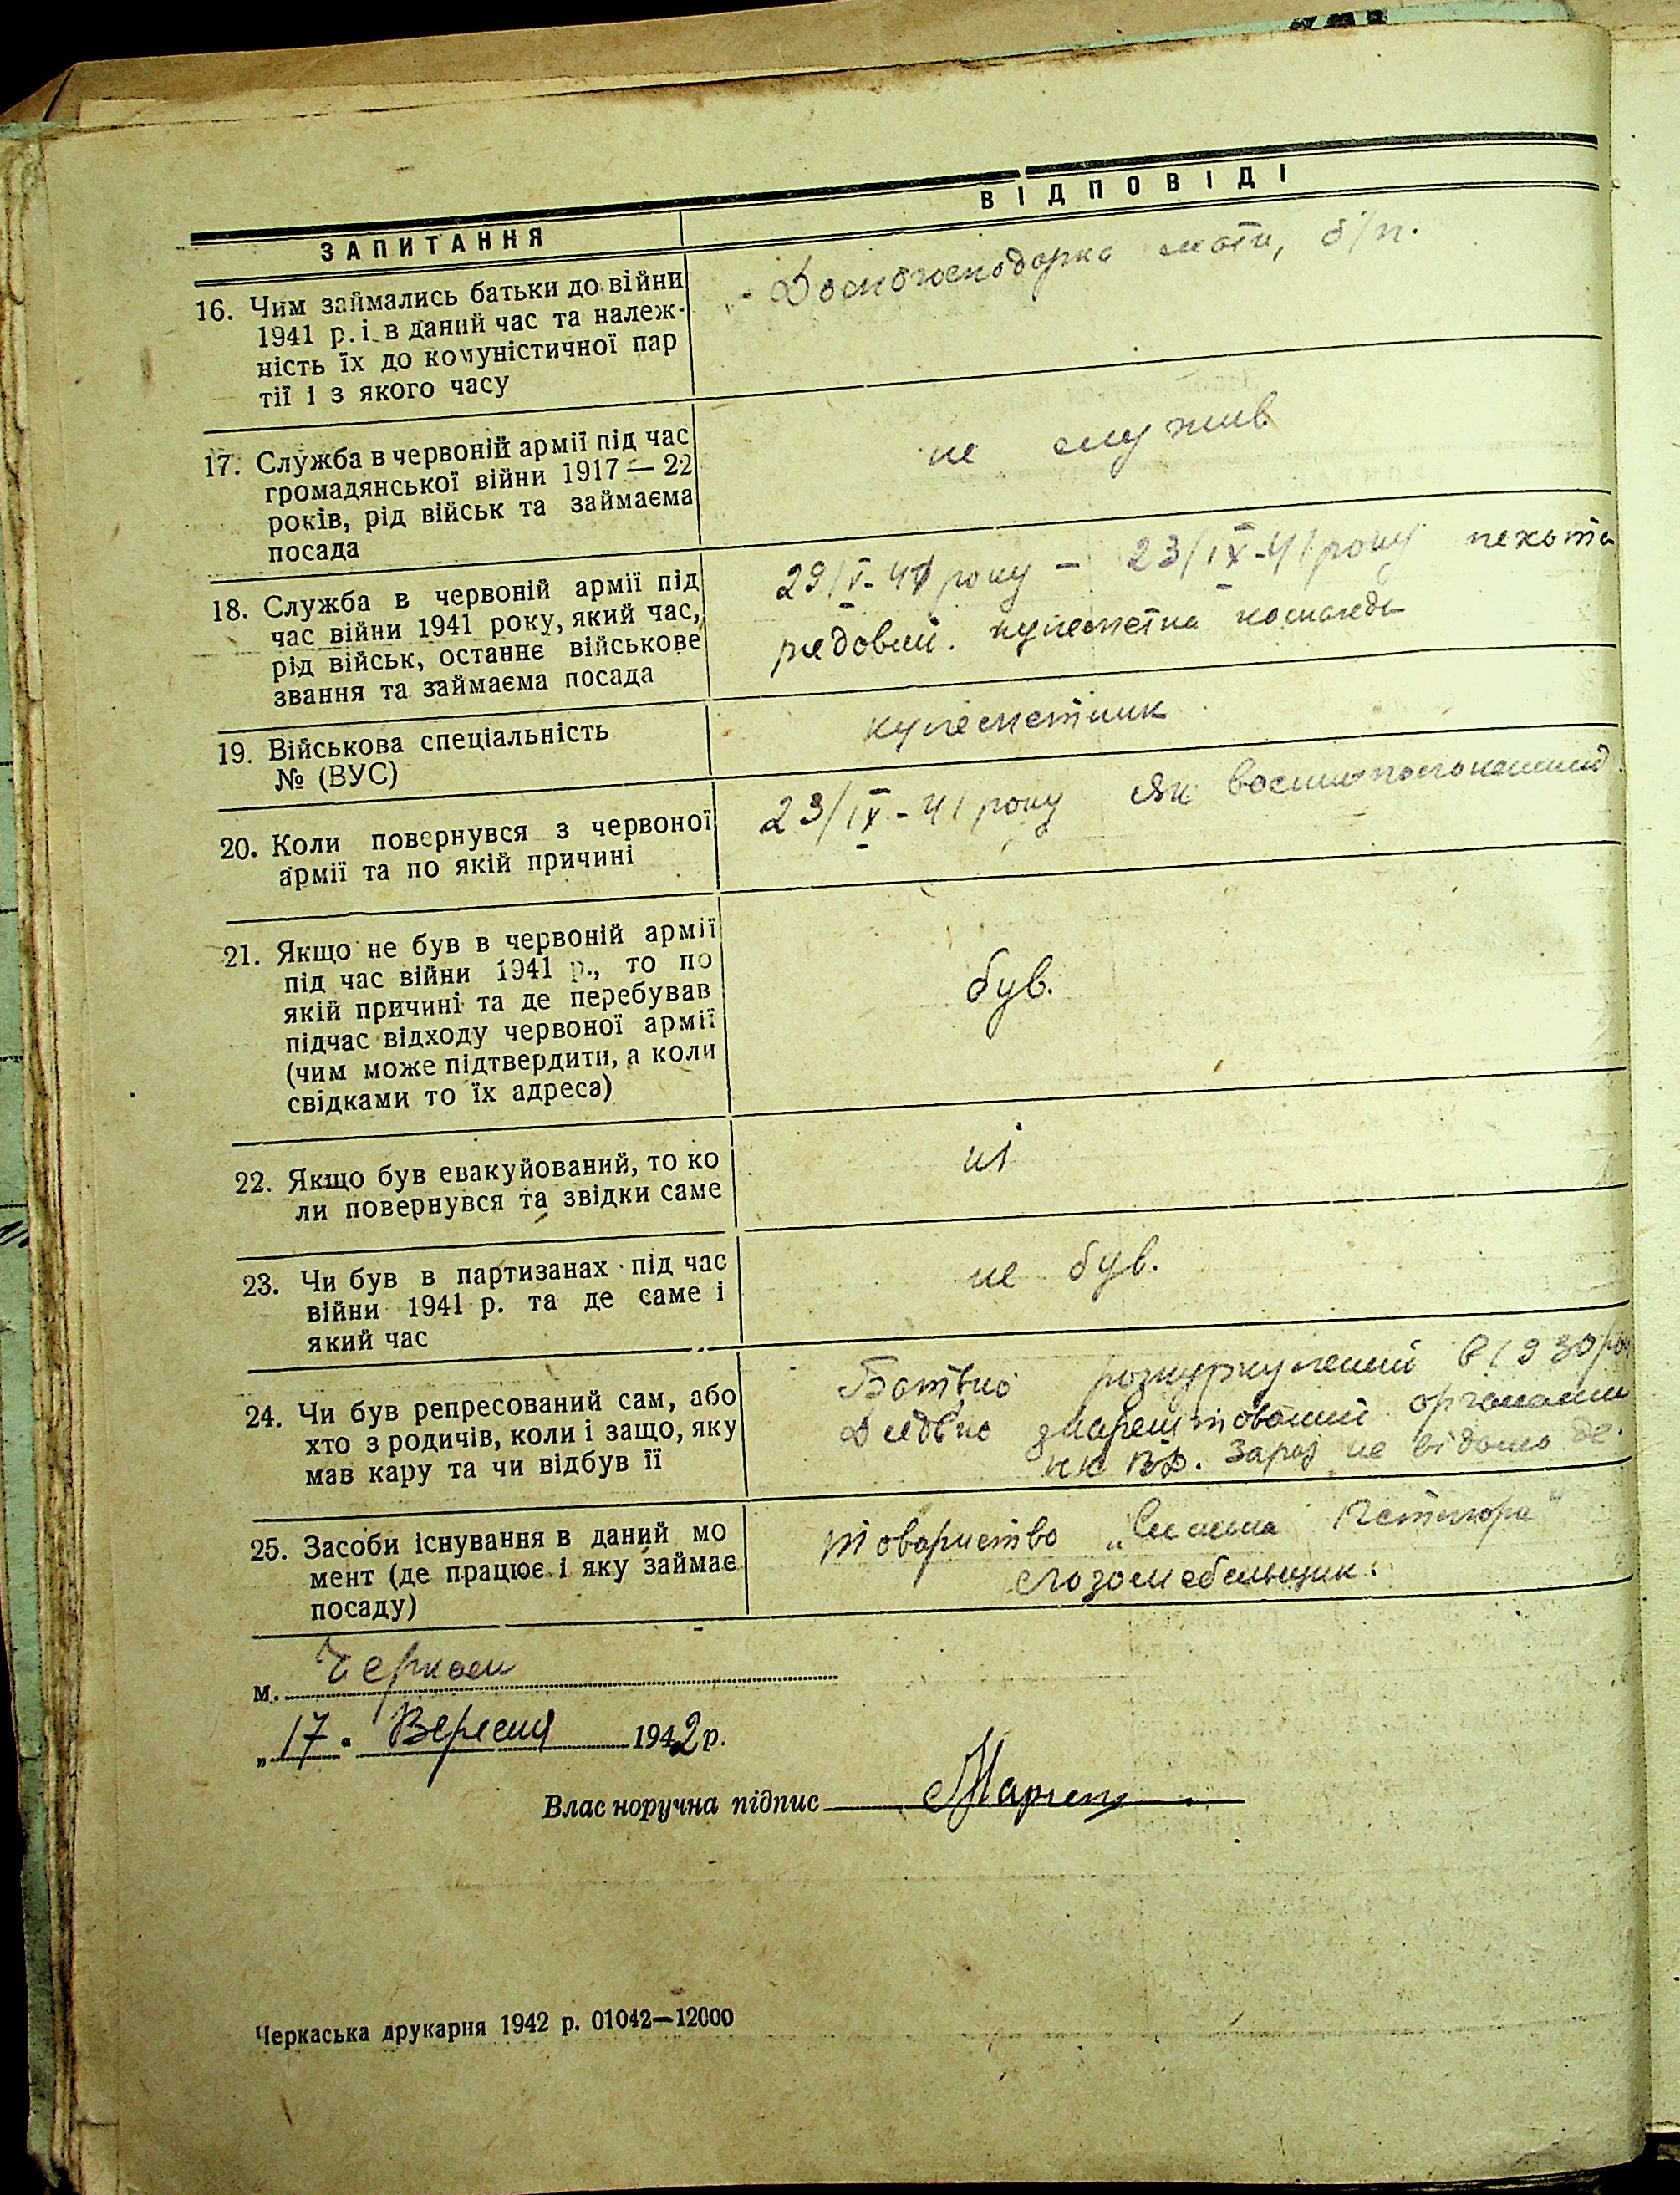 ЗАПИТАННЯ
ВІДПОВІДІ
16. Чим займались батьки до війни
1941 р. і в даний час та належ-
ність їх до комуністичної пар
тії і з якого часу
Домогосподарка мати, б/п.
17. Служба в червоній армії під час
громадянської війни 1917 — 22
років, рід військ та займаєма
посада
не служив
18. Служба в червоній армії під
час війни 1941 року, який час,
рід військ, останнє військове
звання та займаєма посада
29/V-41 року – 23/IX-41 року пехота
рядовий. кулеметна команда
19. Військова спеціальність
№ (ВУС)
кулеметник
20. Коли повернувся з червоної
армії та по якій причині
23/IX-41 року як
21. Якщо не був в червоній армії
під час війни 1941 р., то по
якій причині та де перебував
підчас відходу червоної армії
(чим може підтвердити, а коли
свідками то їх адреса)
був.
22. Якщо був евакуйований, то ко
ли повернувся та звідки саме
ні
23. Чи був в партизанах під час
війни 1941 р. та де саме і
який час
не був.
24. Чи був репресований сам, або
хто з родичів, коли і защо, яку
мав кару та чи відбув її
Батько розкуркулений в 1930 ро
Дядько заарештований органами
НКВД. Зараз не відомо де.
25. Засоби існування в даний мо
мент (де працює і яку займає
посаду)
товариство
м. Черкаси
„17" Вересня 1942 р.
Влас норучна підпис
Черкаська друкарня 1942 р. 01042—12000